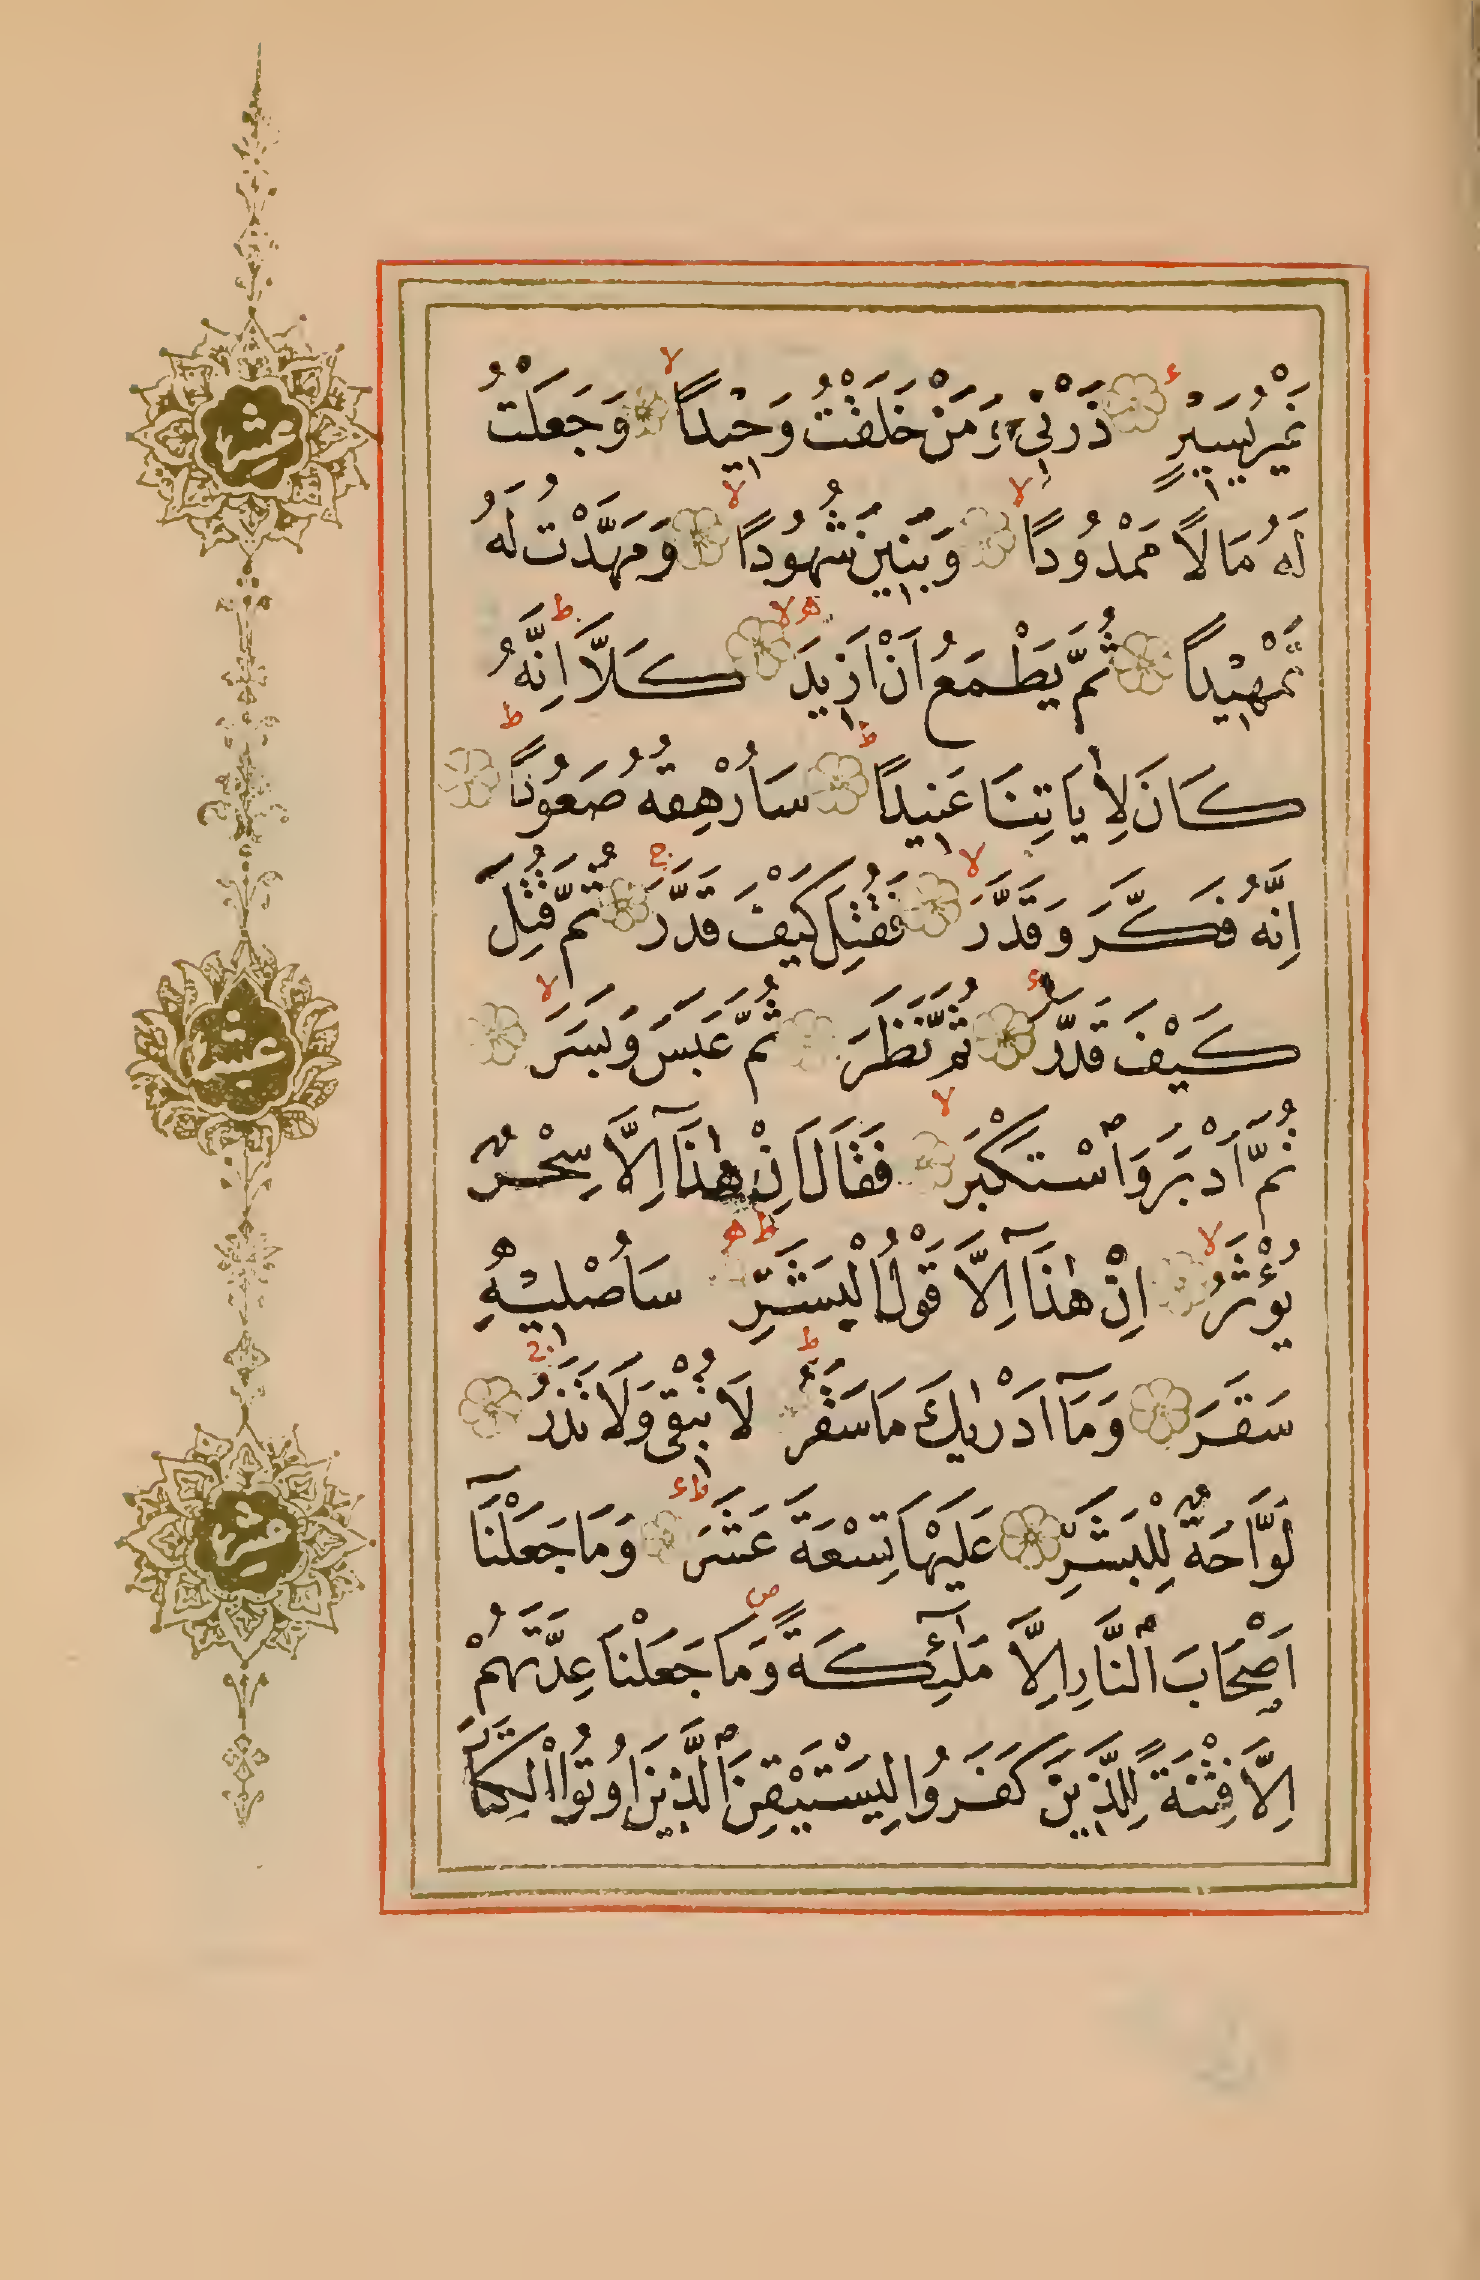 غَيْرُ يَسِيرٍ ذَرْنِي وَمَنْ خَلَقْتُ وَحِيداً وَجَعَلْتُ
لَهُ مَالاً مَمْدُوداً وَبَنِينَ شُهُوداً وَمَهَّدْتُ لَهُ
تَمْهِيداً ثُمَّ يَطْمَعُ اَنْ اَزِيدَ كَلَّا اِنَّهُ
كَانَ لِأٰيَاتِنَا عَنِيداً سَاُرْهِقُهُ صَعُوداً
اِنَّهُ فَكَّرَ وَقَدَّرَ فَقُتِلَ كَيْفَ قَدَّرَ ثُمَّ قُتِلَ
كَيْفَ قَدَّرَ ثُمَّ نَظَرَ ثُمَّ عَبَسَ وَبَسَرَ
ثُمَّ اَدْبَرَ وَاسْتَكْبَرَ فَقَالَ اِنْ هٰذَٓا اِلَّا سِحْرٌ
يُؤْثَرُ اِنْ هٰذَٓا اِلَّا قَوْلُ الْبَشَرِ سَاُصْلِيهِ
سَقَرَ وَمَٓا اَدْرٰيكَ مَا سَقَرُ لَا تُبْقِي وَلَا تَذَرُ
لَوَّاحَةٌ لِلْبَشَرِ عَلَيْهَا تِسْعَةَ عَشَرَ وَمَا جَعَلْنَٓا
اَصْحَابَ النَّارِ اِلَّا مَلٰٓئِكَةً وَمَا جَعَلْنَا عِدَّتَهُمْ
اِلَّا فِتْنَةً لِلَّذِينَ كَفَرُوا لِيَسْتَيْقِنَ الَّذِينَ اُوتُوا الْكِتَابَ
عشر
عشر
عشر